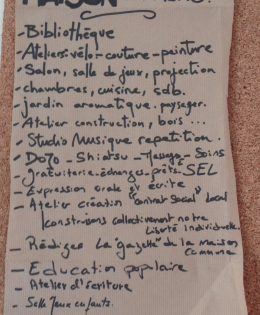 MAISON
- Bibliothèque
- Ateliers: vélo - couture - peinture
- Salon, salle de jeux, projection
- chambres, cuisine, sdb.
- jardin aromatique. paysager.
- Atelier construction, bois ...
- Studio Musique repetition.
- Dojo - Shiatsu - Massage - Soins
- gratuiterie. échanges - prêts. SEL
- Expression orale et écrite
- Atelier création "contrat social" local
construisons collectivement notre
liberté individuelle.
- Rédiger la "gazette" de la maison
commune
- Education populaire
- Atelier d'écriture
- Salle Jeux enfants.